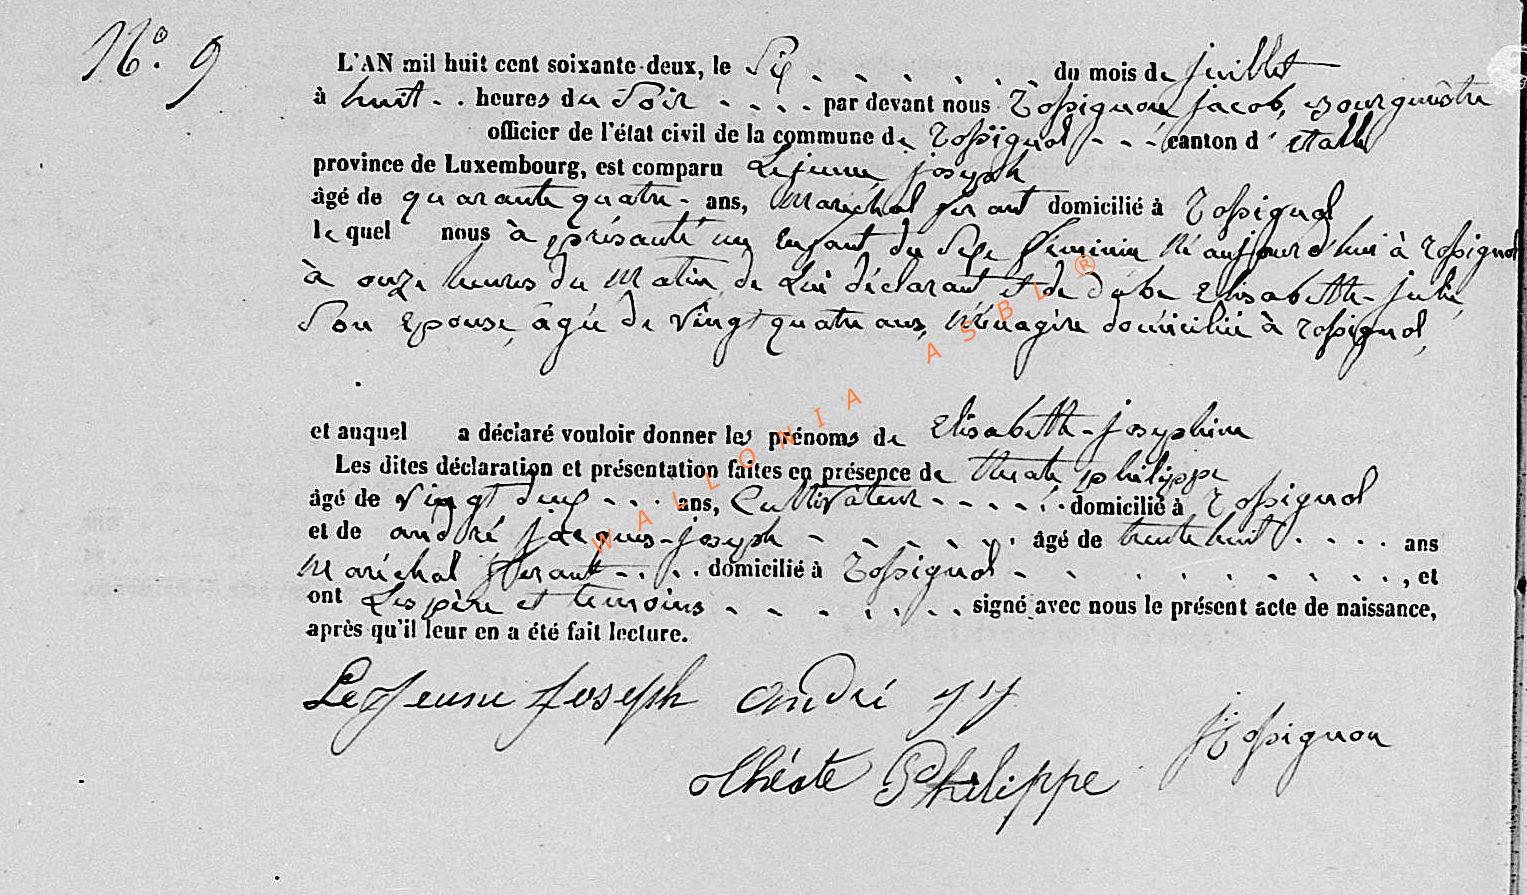 N°. 9
L'AN mil huit cent soixante-deux, le Six - - - - - - du mois de juillet
à huit - . heures du Soir - - - - par devant nous Rossignon jacob, Bourgmestre
officier de l'état civil de la commune de Rossignol - - - canton d'étalle
province de Luxembourg, est comparu Lejeune joseph
âgé de quarante quatre - ans, Maréchal ferant domicilié à Rossignol
le quel nous à présanté un Enfant du Sexe féminin né aujourd'hui à Rossignol
à onze heures du Matin, de Lui déclarant et de Elisabeth-julie,
Son Epouse, âgée de vingt quatre ans, Ménagère domiciliée à Rossignol,
et auquel a déclaré vouloir donner les prénoms de Elisabeth-josephine
Les dites déclaration et présentation faites en présence de philippe
âgé de vingt deux - - - . ans, Cultivateur - - - - - . . domicilié à Rossignol
et de andré jacques-joseph - - - - - - . âgé de trente huit . . . . ans
Maréchal ferant - . . . domicilié à Rossignol - - . . . . . . . . , et
ont Les père et temoins - - - . . . . signé avec nous le présent acte de naissance,
après qu'il leur en a été fait lecture.
LeJeune Joseph andré JJ
JRossignon
Philippe
WALLONIA ASBL ®